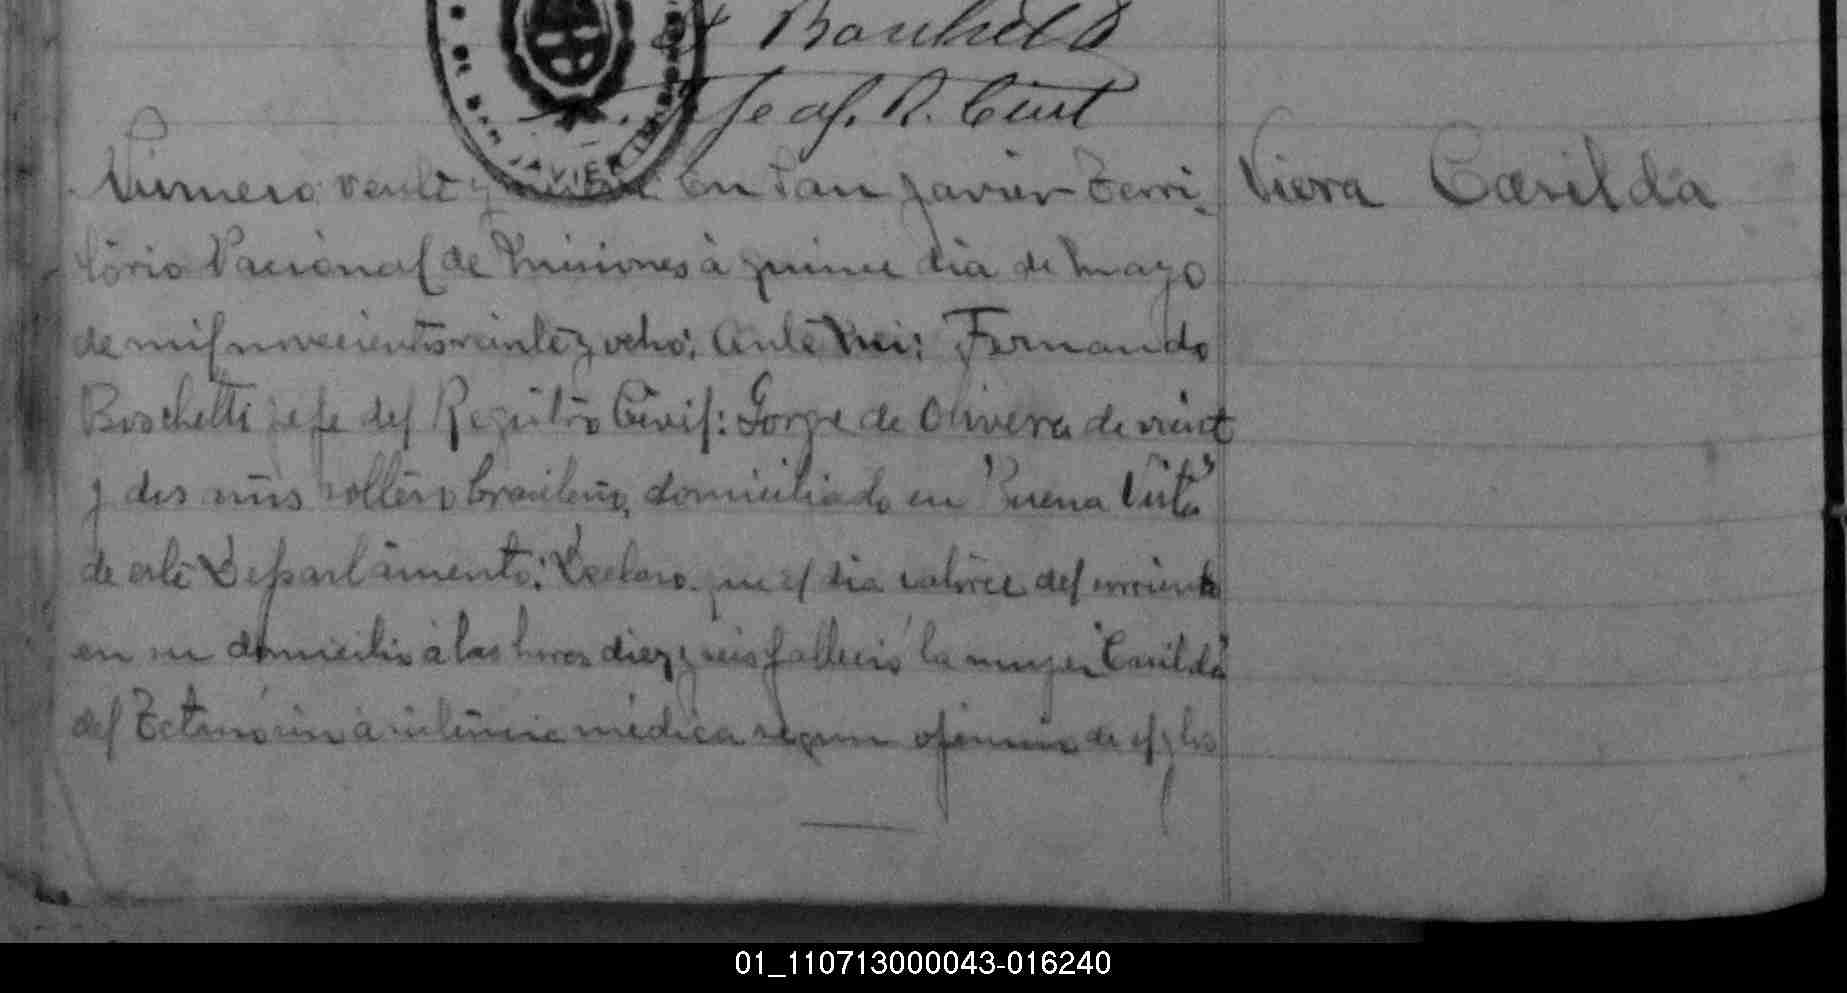 F. Boschetti
Jefe del R. Civil
DE SAN JAVIER
Numero veinte y En San Javier Terri- Viera Casilda
tório Nacional de Misiones à quince dia de Mayo
de mil novecientos veinte y ocho; Ante Mi; Fernando
Boschetti jefe del Registro Civil: Jorge de Olivera de vieint
y dos años soltero brasileño, domiciliado en "Buena Vista"
de este Departamento: Declaro que el dia catorce del corriente
en su domicilio à las horas diez y seis fallecio la mujer "Casilda"
del Tetano sin asistencia médica segun opinion de el y los
01_110713000043-016240